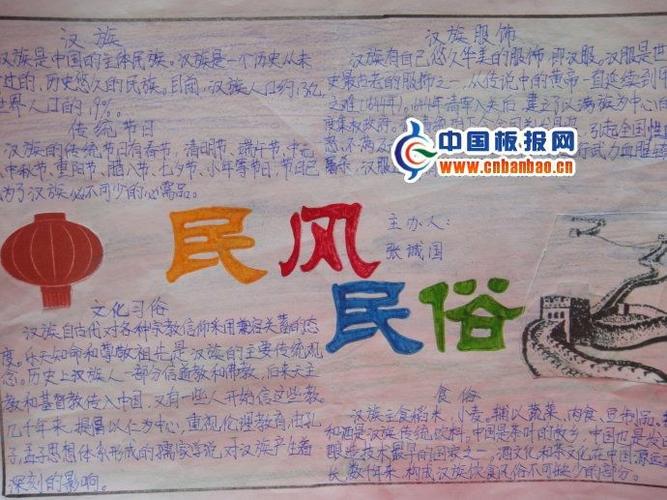 汉族
汉族是中国的主体民族。汉族是一个历史从未
过的,历史悠久的民族。目前,汉族人口约13亿
世界人口的19%。
传统节日
汉族的传统节日有春节、清明节、端午节、中元
中秋节、重阳节、腊八节、七夕节、小年等节日,节日已
为了汉族必不可少的心需品。
汉族服饰
汉族有自己悠久华美的服饰,即汉服。汉服是世
史最古老的服饰之一,从传说中的黄帝一直延续到
之难(1644年)。1644年清军入关后,建立了以满族为中心的
度集权政府
引起全国性
武力血腥
汉服
中国板报网
www.cnbanbao.cn
民风
民俗
主办人:
张诚国
文化习俗
汉族自古代对各种宗教信仰采用兼容关蓄的态
度。乐天知命和尊敬祖先是汉族的主要传统观
念。历史上汉族人一部分信道教和佛教,后来天主
教和基督教传入中国,又有一些人开始信这些教。
几千年来,提倡以仁为中心,重视伦理教育,由孔
子,孟子思想体系形成的儒家学说,对汉族产生着
深刻的影响。
食俗
汉族主食稻米、小麦。辅以蔬菜、肉食、豆制品。
和酒是汉族传统饮料。中国是茶叶的故乡,中国也是发
酿造技术最早的国家之一,酒文化和茶文化在中国源远
长,数千年来,构成汉族饮食风俗不可缺少的部分。